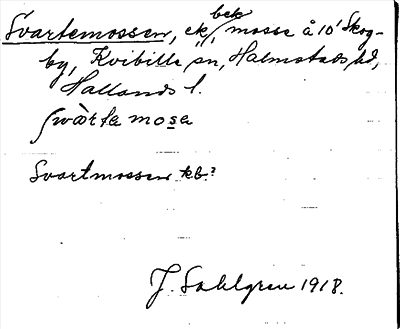 Svartemossen, ek, bek mosse å 10' Skog-
by, Kvibille sn, Halmstads hd,
Hallands l.
swàrta mosa
Svartmossen kb?
J. Sahlgren 1918.